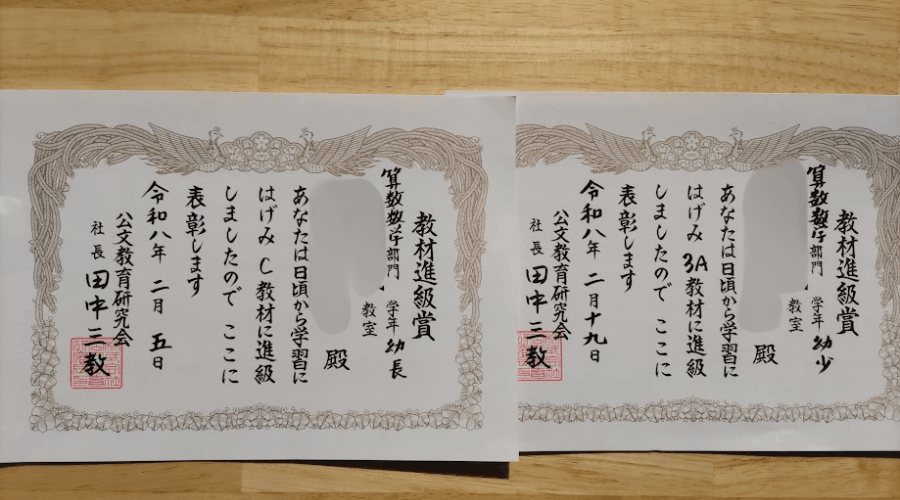 教材進級賞
算数数学部門 学年 幼長
教室
殿
あなたは日頃から学習に
はげみ C 教材に進級
しましたので ここに
表彰します
令和八年 二月 五日
公文教育研究会
社長 田中三教
教材進級賞
算数数学部門 学年 幼少
教室
殿
あなたは日頃から学習に
はげみ 3A 教材に進級
しましたので ここに
表彰します
令和八年 二月 十九日
公文教育研究会
社長 田中三教